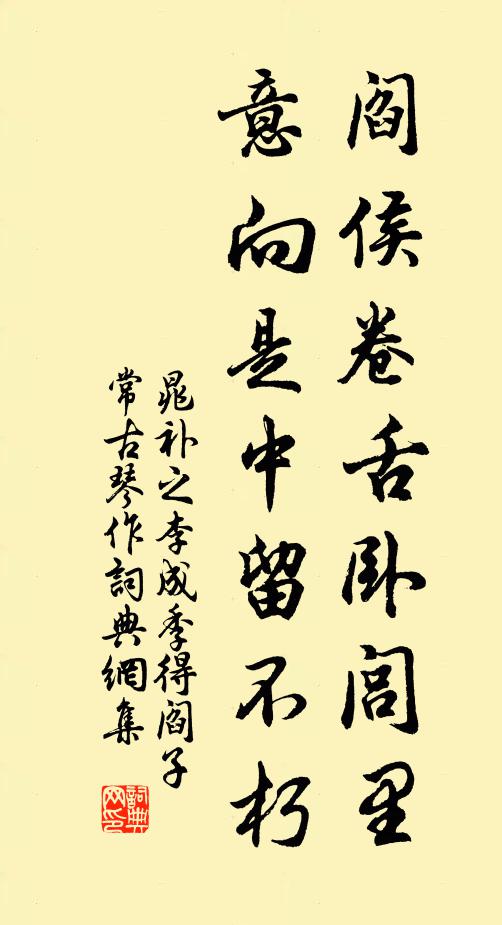 阎侯卷舌卧闾里
意向是中留不朽
晁补之李成季得阎子
常古琴作詞典網集
詞典网印